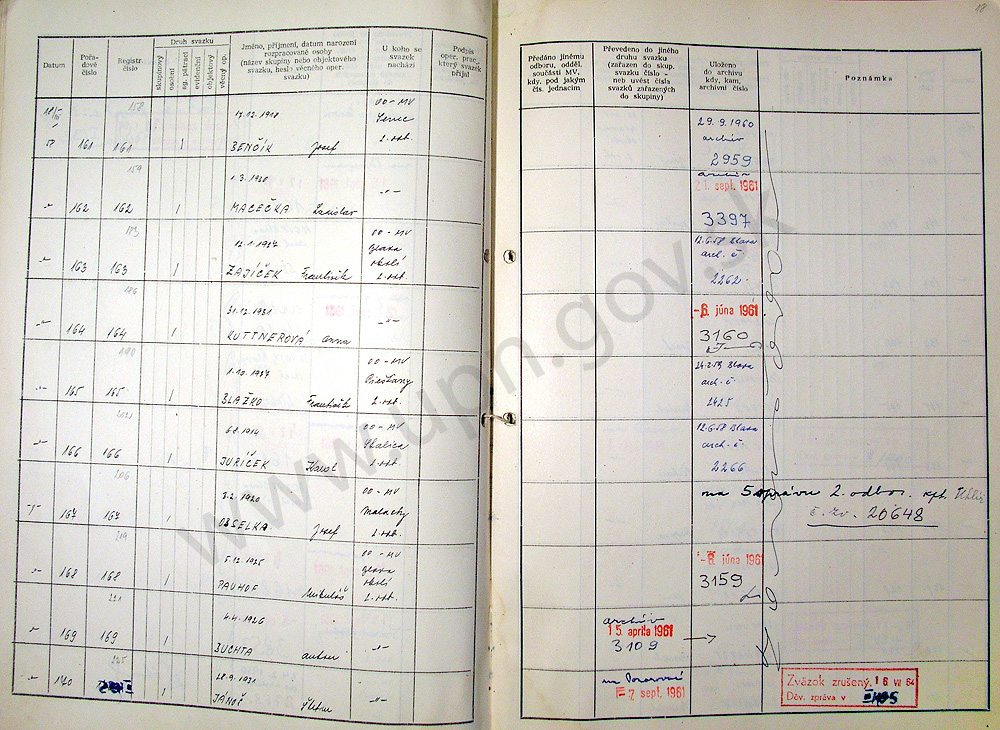 18
Datum
Pořa-
dové
číslo
Registr.
číslo
Druh svazku
skupinový
osobní
ag. pátrací
evidenční
objektový
věcný op.
Jméno, příjmení, datum narození
rozpracované osoby
(název skupiny nebo objektového
svazku, heslo věcného oper.
svazku)
U koho se
svazek
nachází
Podpis
oper. prac.,
který svazek
přijal
Předáno jinému
odboru, odděl.
součásti MV,
kdy, pod jakým
čís. jednacím
Převedeno do jiného
druhu svazku
(zařazen do skup.
svazku číslo -
neb uvést čísla
svazků zařazených
do skupiny)
Uloženo
do archivu
kdy, kam,
archivní číslo
Poznámka
158
17.12.1910
OO-MV
Senec
161 161 1 BENČÍK Josef 2. odd.
29.9.1960
archív
2959
159
1.3.1920
162 162 1 MACEČKA Ladislav -"-
archív
21. sept. 1961
3397
173
12.1.1927
OO-MV
Blava
okolí
163 163 1 ZAJÍČEK František 2. odd.
12.6.58 Blava
arch. č.
2262
176
31.12.1931
164 164 1 KUTTNEROVÁ Anna -"-
-6. júna 1961
3160
190
1.10.1927
OO-MV
Piešťany
165 165 1 BLAŽKO František 2. odd.
24.2.59 Blava
arch. č.
1425
6.8.1914
OO-MV
Skalica
166 166 1 JURÍČEK Karol 2. odd.
12.6.58 Blava
arch. č.
2266
206
3.2.1920
OO-MV
Malacky
167 167 1 OBSELKA Josef 2. odd.
na 5 správu 2. odbor. kpt. Uhlír
č. ev. 20648
219
5.12.1925
OO-MV
Blava
okolí
168 168 1 PAUHOF Mikuláš 2. odd.
-8. júna 1961
3159
221
4.4.1926
169 169 1 BUCHTA Anton -"-
archív
15. apríla 1961
3109
225
28.9.1931
170 1 JÁNOŠ -"-
na
7. sept. 1961
Zväzok zrušený. 16 VII 64
Dôv. zpráva v
www.upn.gov.sk